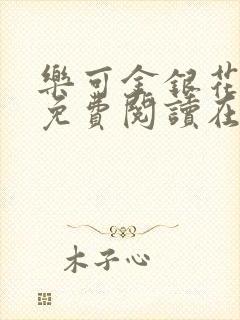 樂可金銀花
免費閱讀在
木子心